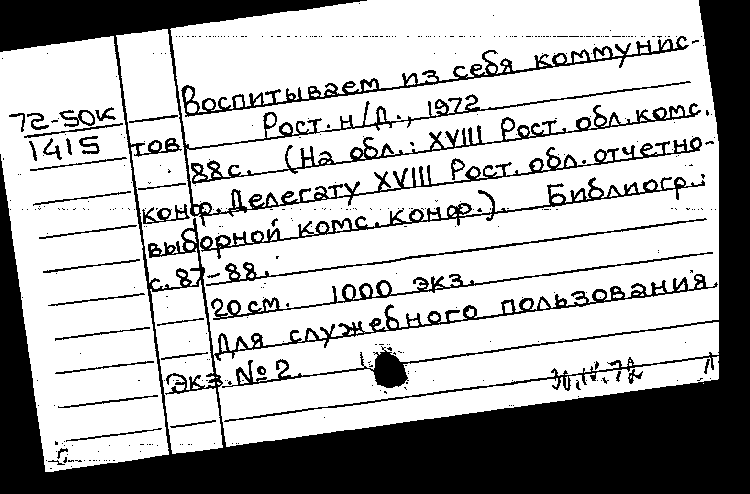 Воспитываем из себя коммунис-
72-50к
1415
тов. Рост. н/Д., 1972
88с. (На обл.: XVIII Рост. обл. комс.
конф. Делегату XVIII Рост. обл. отчетно-
выборной комс. конф.). Библиогр.:
с. 87-88.
20см. 1000 экз.
Для служебного пользования.
Экз. №2.